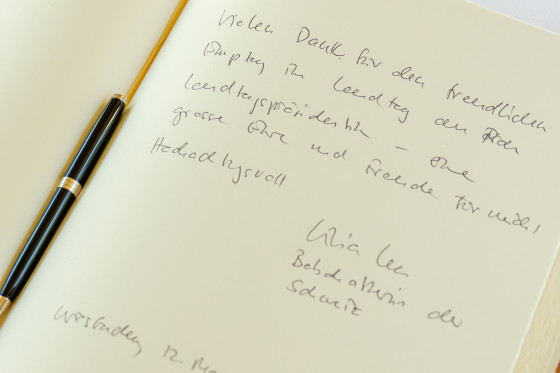 Vielen Dank für den freundlichen
Empfang im Landtag den
Landtagspräsidentin – eine
grosse Ehre und Freude für mich!
Hochachtungsvoll
Botschafterin der
Schweiz
Wiesbaden, 12. Ma